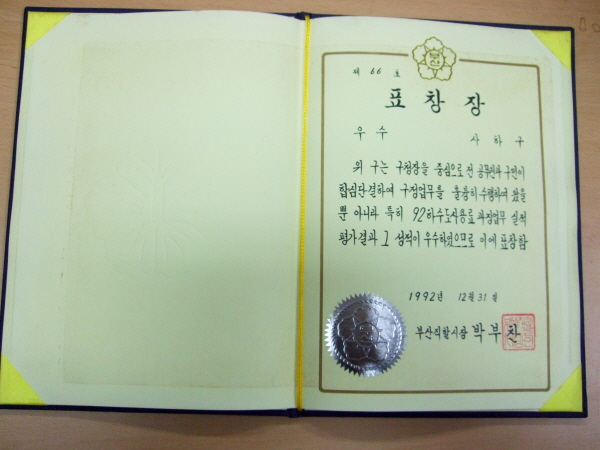 부산
제 66 호
표 창 장
우 수 사 하 구
위 구는 구청장을 중심으로 전 공무원과 구민이
합심단결하여 구정업무를 훌륭히 수행하여 왔을
뿐 아니라 특히 92하수도사용료 과징업무 실적
평가결과 그 성적이 우수하였으므로 이에 표창함
1992년 12월 31일
부산직할시장 박 부 찬